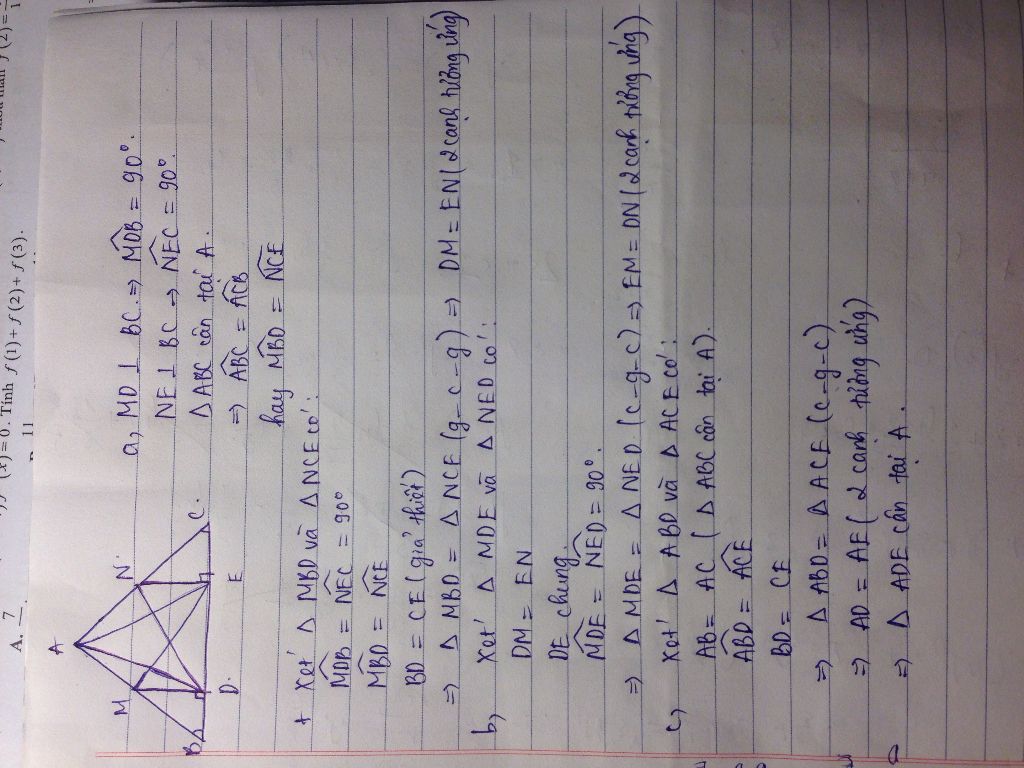 (x) = 0. Tính f(1) + f(2) + f(3).
A. 7
11
f(2) =
A
M
N
B
D
E
C
a, MD ⊥ BC ⇒ \widehat{MDB} = 90°.
NE ⊥ BC ⇒ \widehat{NEC} = 90°.
Δ ABC cân tại A.
⇒ \widehat{ABC} = \widehat{ACB}
hay \widehat{MBD} = \widehat{NCE}
+ Xét Δ MBD và Δ NCE có:
\widehat{MDB} = \widehat{NEC} = 90°
\widehat{MBD} = \widehat{NCE}
BD = CE (giả thiết)
⇒ Δ MBD = Δ NCE (g-c-g) ⇒ DM = EN (2 cạnh tương ứng)
b, Xét Δ MDE và Δ NED có:
DM = EN
DE chung.
\widehat{MDE} = \widehat{NED} = 90°.
⇒ Δ MDE = Δ NED (c-g-c) ⇒ EM = DN (2 cạnh tương ứng)
c, Xét Δ ABD và Δ ACE có:
AB = AC (Δ ABC cân tại A).
\widehat{ABD} = \widehat{ACE}
BD = CE
⇒ Δ ABD = Δ ACE (c-g-c)
⇒ AD = AE (2 cạnh tương ứng)
⇒ Δ ADE cân tại A.